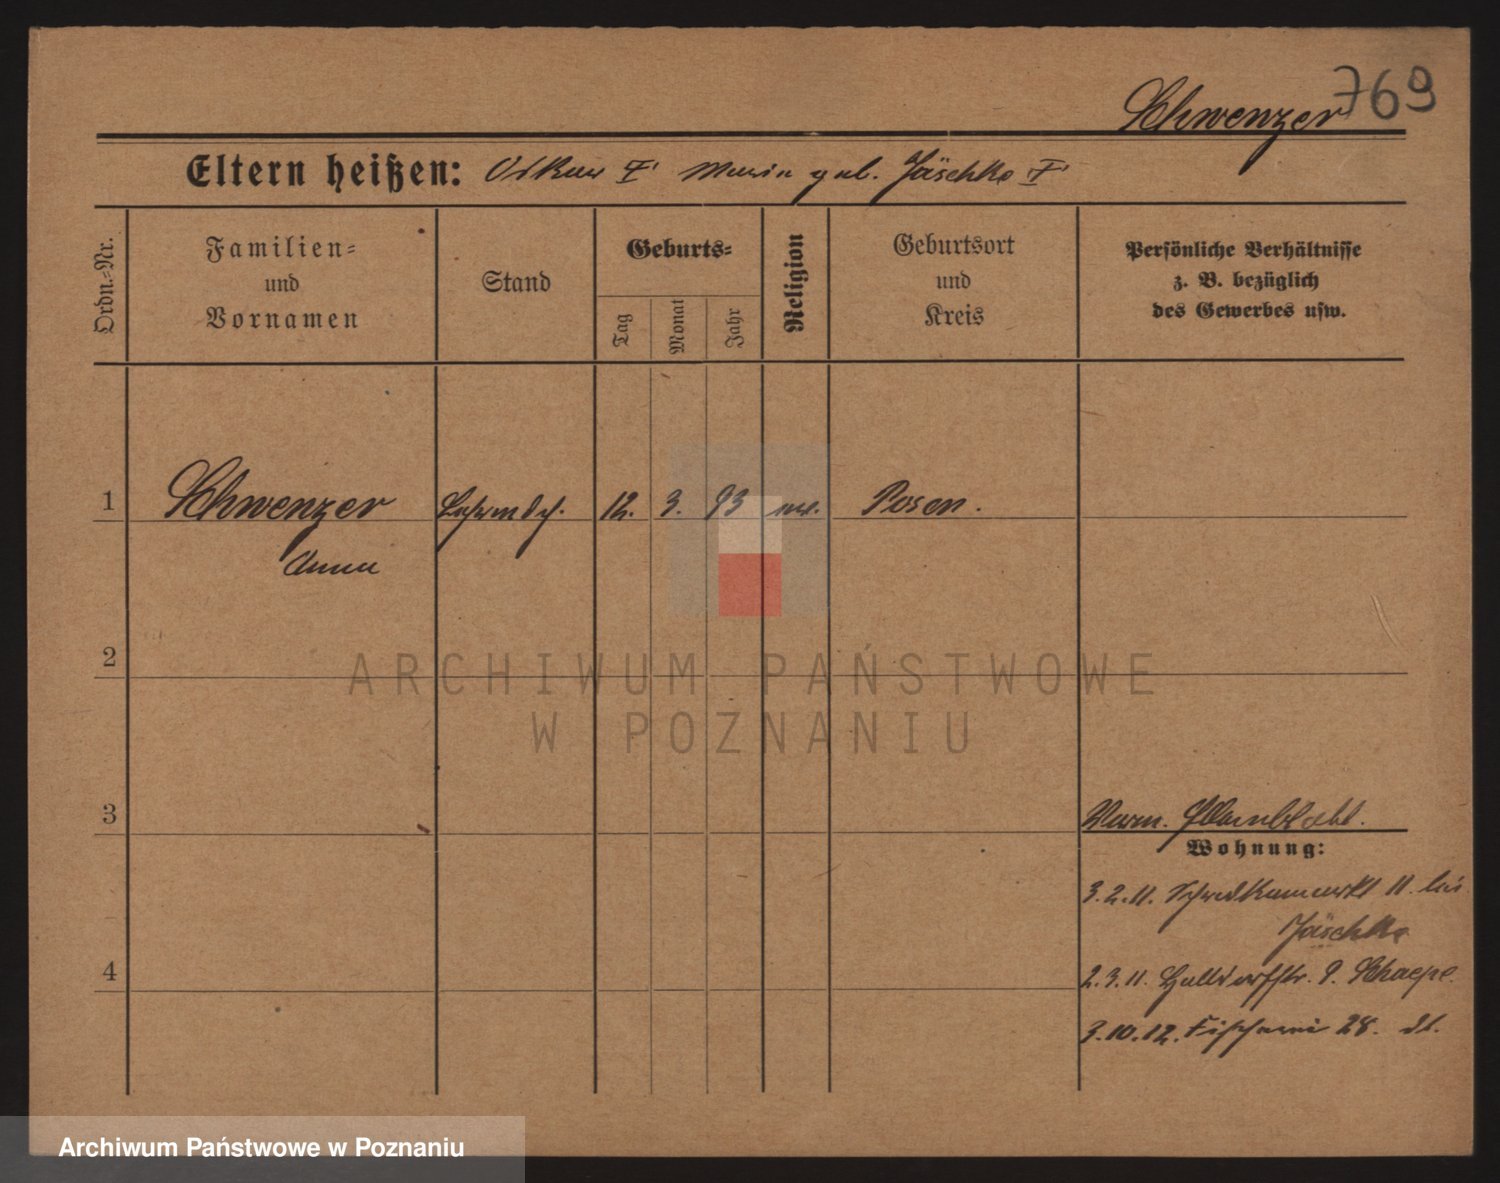 769
Schwenzer
Eltern heißen: Oskar † Maria geb. Jäschke †
Ordn.-Nr.
Familien-
und
Vornamen
Stand
Geburts-
Tag
Monat
Jahr
Religion
Geburtsort
und
Kreis
Persönliche Verhältnisse
z. B. bezüglich
des Gewerbes usw.
1 Schwenzer 12. 3. 93 Posen.
Anna
2
3
Wohnung:
3.2.11. 11. bei
Jäschke
4
2.3.11. 9. Schaepe.
3.10.12. Fischerei 28. dt.
ARCHIWUM PAŃSTWOWE
W POZNANIU
Archiwum Państwowe w Poznaniu